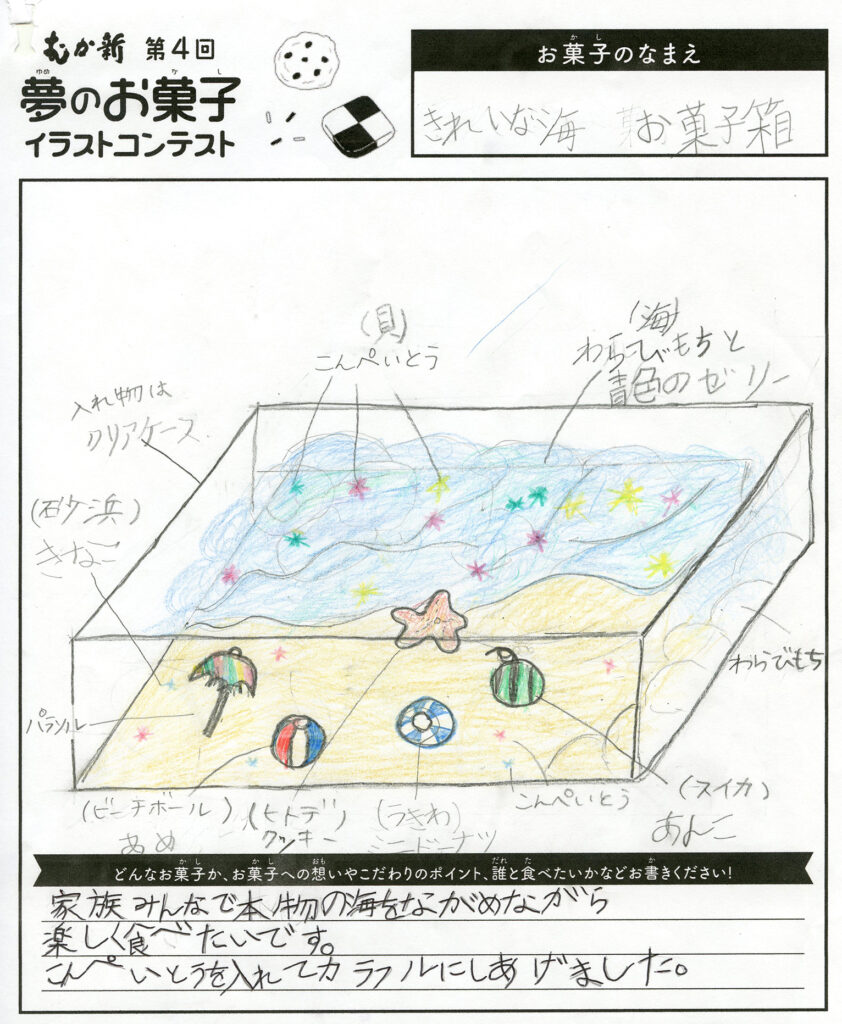 むか新 第4回
夢のお菓子
イラストコンテスト
お菓子のなまえ
きれいな海 お菓子箱
(貝)
こんぺいとう
(海)
わらびもちと
青色のゼリー
入れ物は
クリアケース
(砂浜)
きなこ
わらびもち
パラソル
(ビーチボール)
あめ
(ヒトデ)
クッキー
(うきわ)
ミニドーナツ
こんぺいとう
(スイカ)
あんこ
どんなお菓子か、お菓子への想いやこだわりのポイント、誰と食べたいかなどお書きください!
家族みんなで本物の海をながめながら
楽しく食べたいです。
こんぺいとうを入れてカラフルにしあげました。